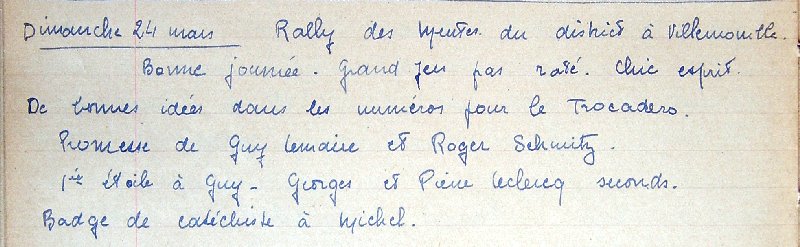 Dimanche 24 mars Rally des Meutes du district à Villemomble.
Bonne journée. Grand Jeu pas raté. Chic esprit.
De bonnes idées dans les numéros pour le Trocadero.
Promesse de Guy Lemaire et Roger Schmitz.
1ère étoile à Guy - Georges et Pierre Leclercq seconds.
Badge de catéchiste à Michel.